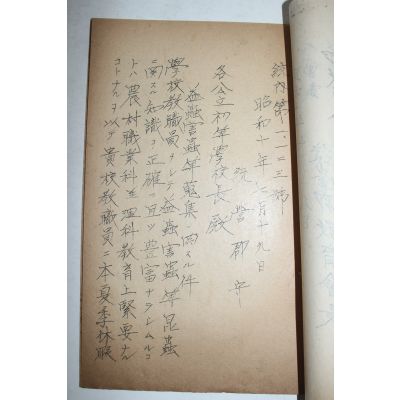 統內第一一二三號
昭和十年七月十九日
統營郡守
各公立初等學校長殿
益蟲害蟲等蒐集ニ關スル件
學校敎職員ヲシテ益蟲害蟲等昆蟲
ニ關スル知識ヲ正確且ツ豊富ナラシムルコ
トハ農村職業科並理科敎育上緊要ナル
コトナルヲ以テ貴校敎職員ニ本夏季休暇